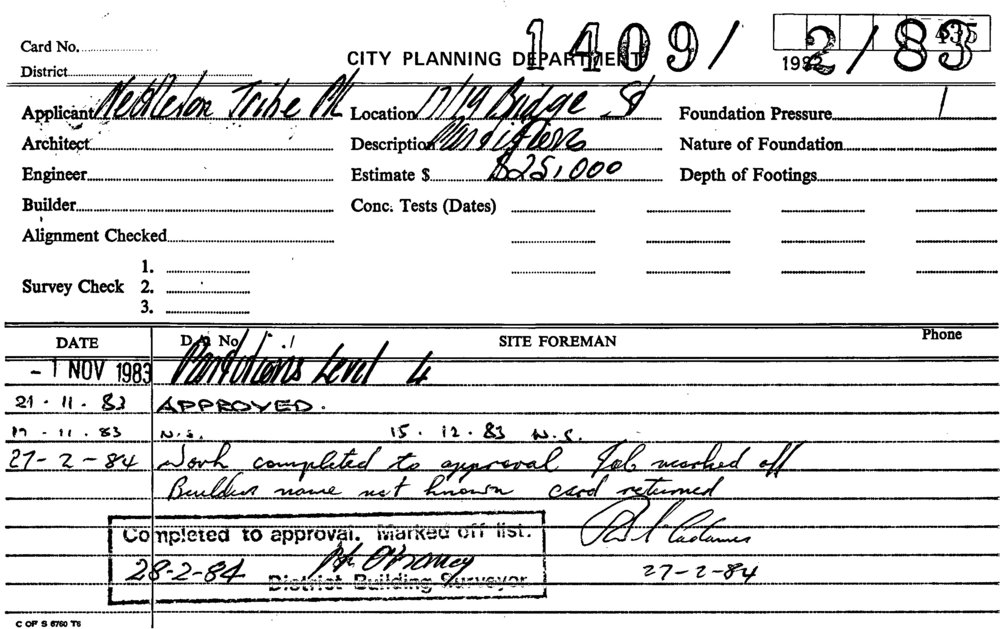 1409/ 2/83
435
Card No.
CITY PLANNING DEPARTMENT 1982
District
Applicant Nettleton Tribe P/L Location 17/19 Bridge St Foundation Pressure
Architect Description Partitions Nature of Foundation
Engineer Estimate $ $25,000 Depth of Footings
Builder Conc. Tests (Dates)
Alignment Checked
1.
Survey Check 2.
3.
DATE D.A No SITE FOREMAN Phone
- 1 NOV 1983 Partitions Level 4
21 - 11 - 83 APPROVED.
- 11 - 83 N.S. 15 . 12 . 83 N.S.
27 - 2 - 84 Work completed to approval Job marked off
Builders name not known card returned
Completed to approval. Marked off list.
28-2-84
27-2-84
District Building Surveyor
C OF S 6760 T5